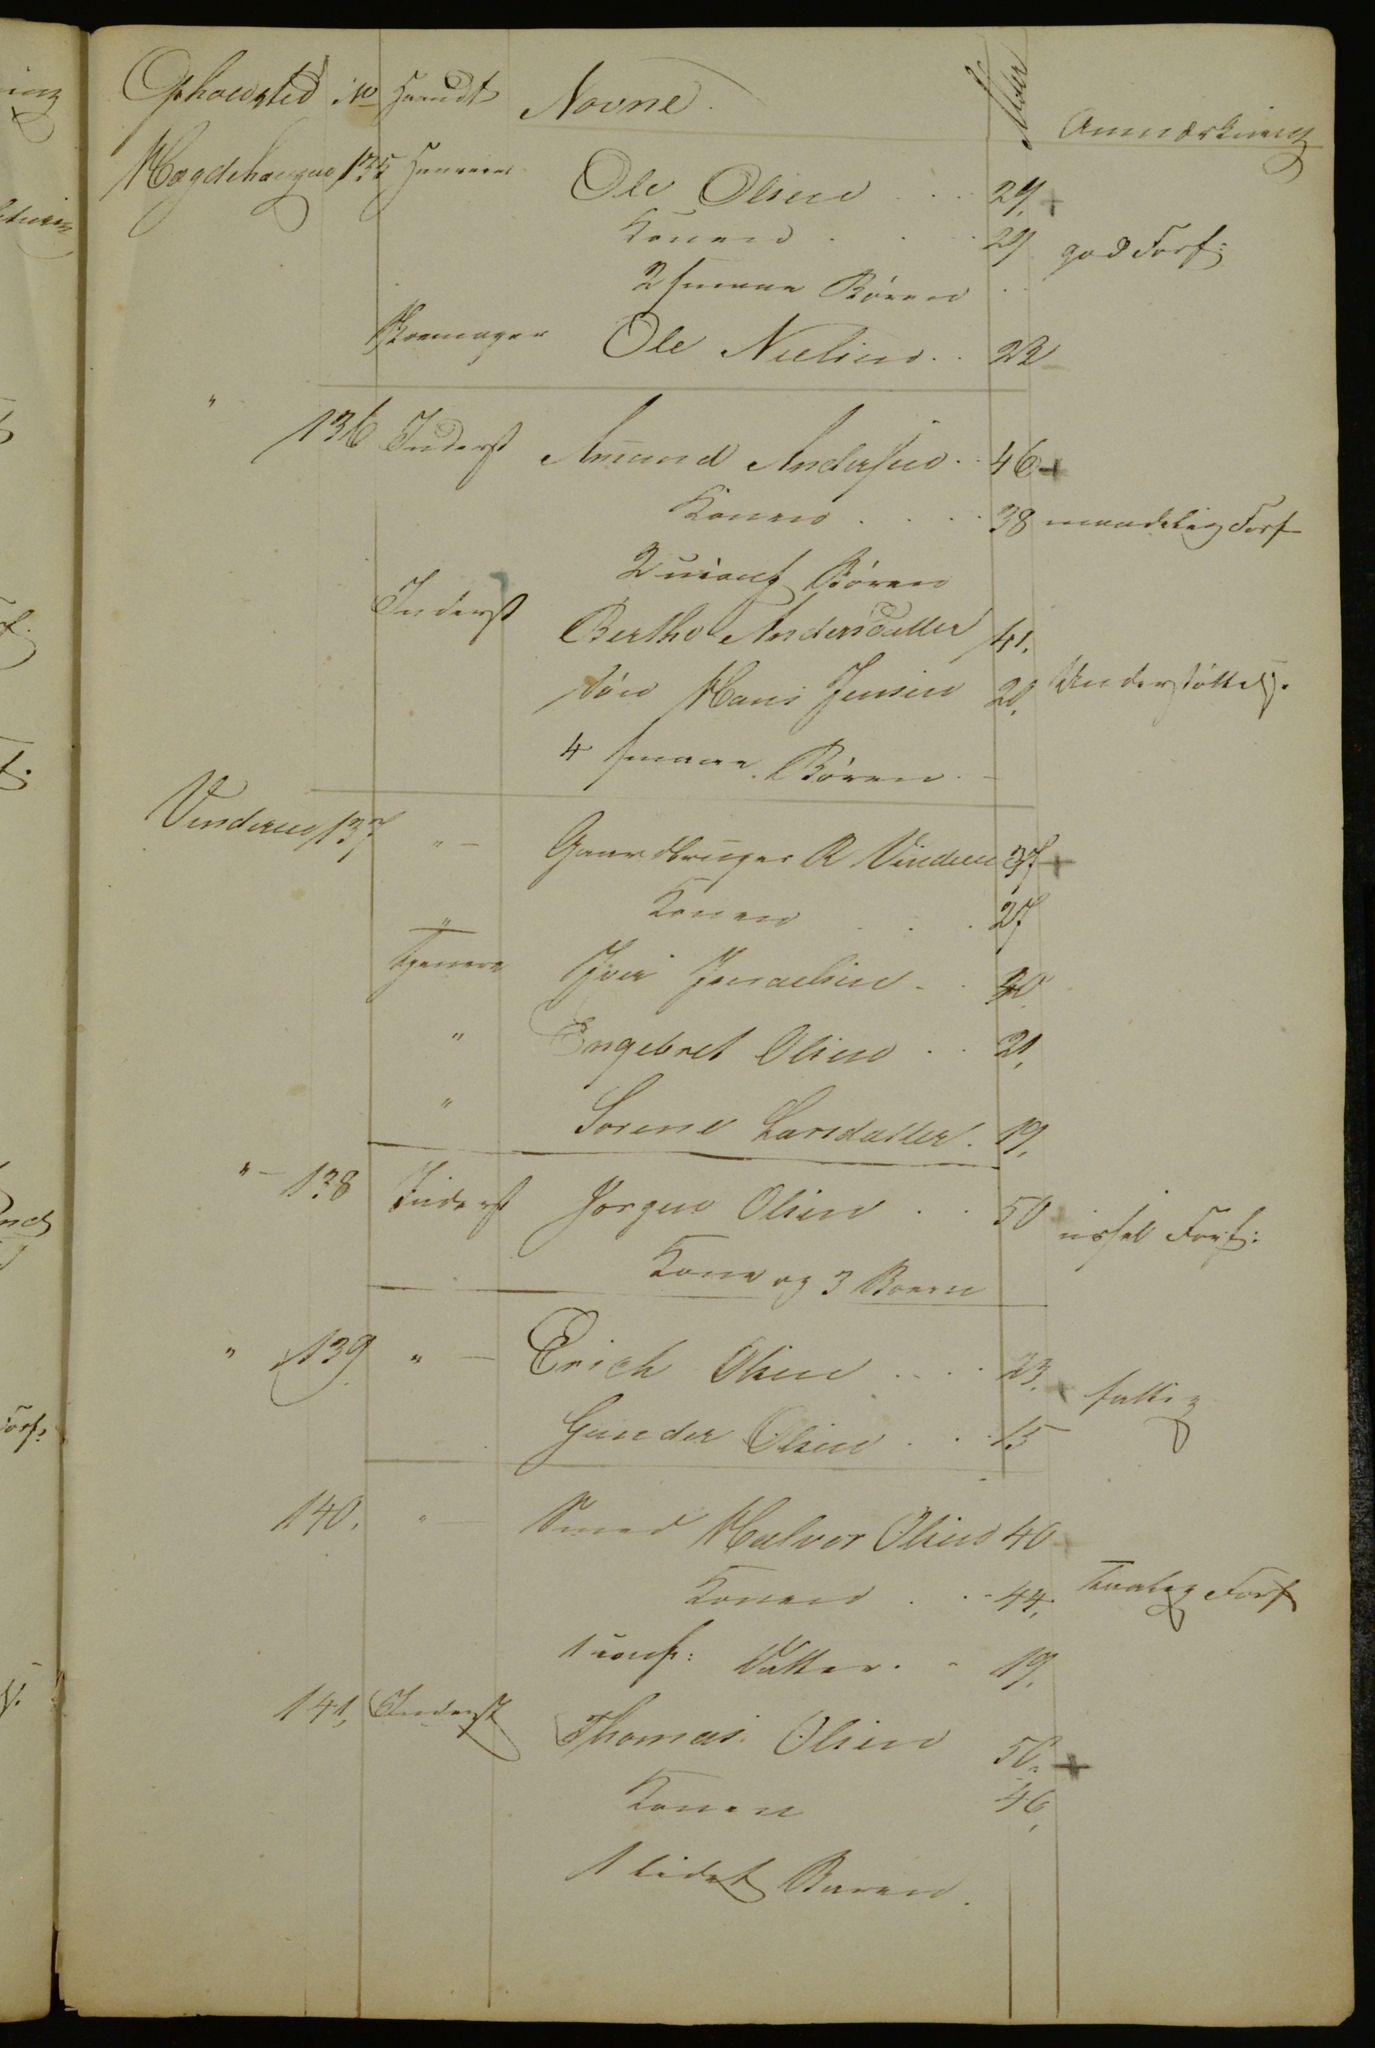 Opholdsted No Handt Navne. Alder Anmærkning
Hægdehaugen 135 Ole Olsen 29
Konen 29 god Forf:
2 smaae Børen
Skomager Ole Nielsen 22
" 136 Inderst Amund Andersen 46
Konen 38 maadelig Forf
2 uconf Børen
Inderst Berthe Andersdatter 41.
Søn Hans Jensen 20. Understøttelse.
4 smaae Børen
Vinderen 137 " Gaardbruger R Vinderen 37
Konen 27
" Tjenere Iver 20
" Engebret Olsen 21.
" Sorine Larsdatter. 19.
" 138 Inderst Jørgen Olsen 50 ussel Forf:
Kone og 3 Boern
" 139 " Erich Olsen 23. fattig
Gunder Olsen 15
140. " Smed Halvor Olsen 40
Konen 44. taalig Forf
1 conf: Datter. 19.
141, Inderst Thomas Olsen 50.
Konen 46,
1 lidet Baren.